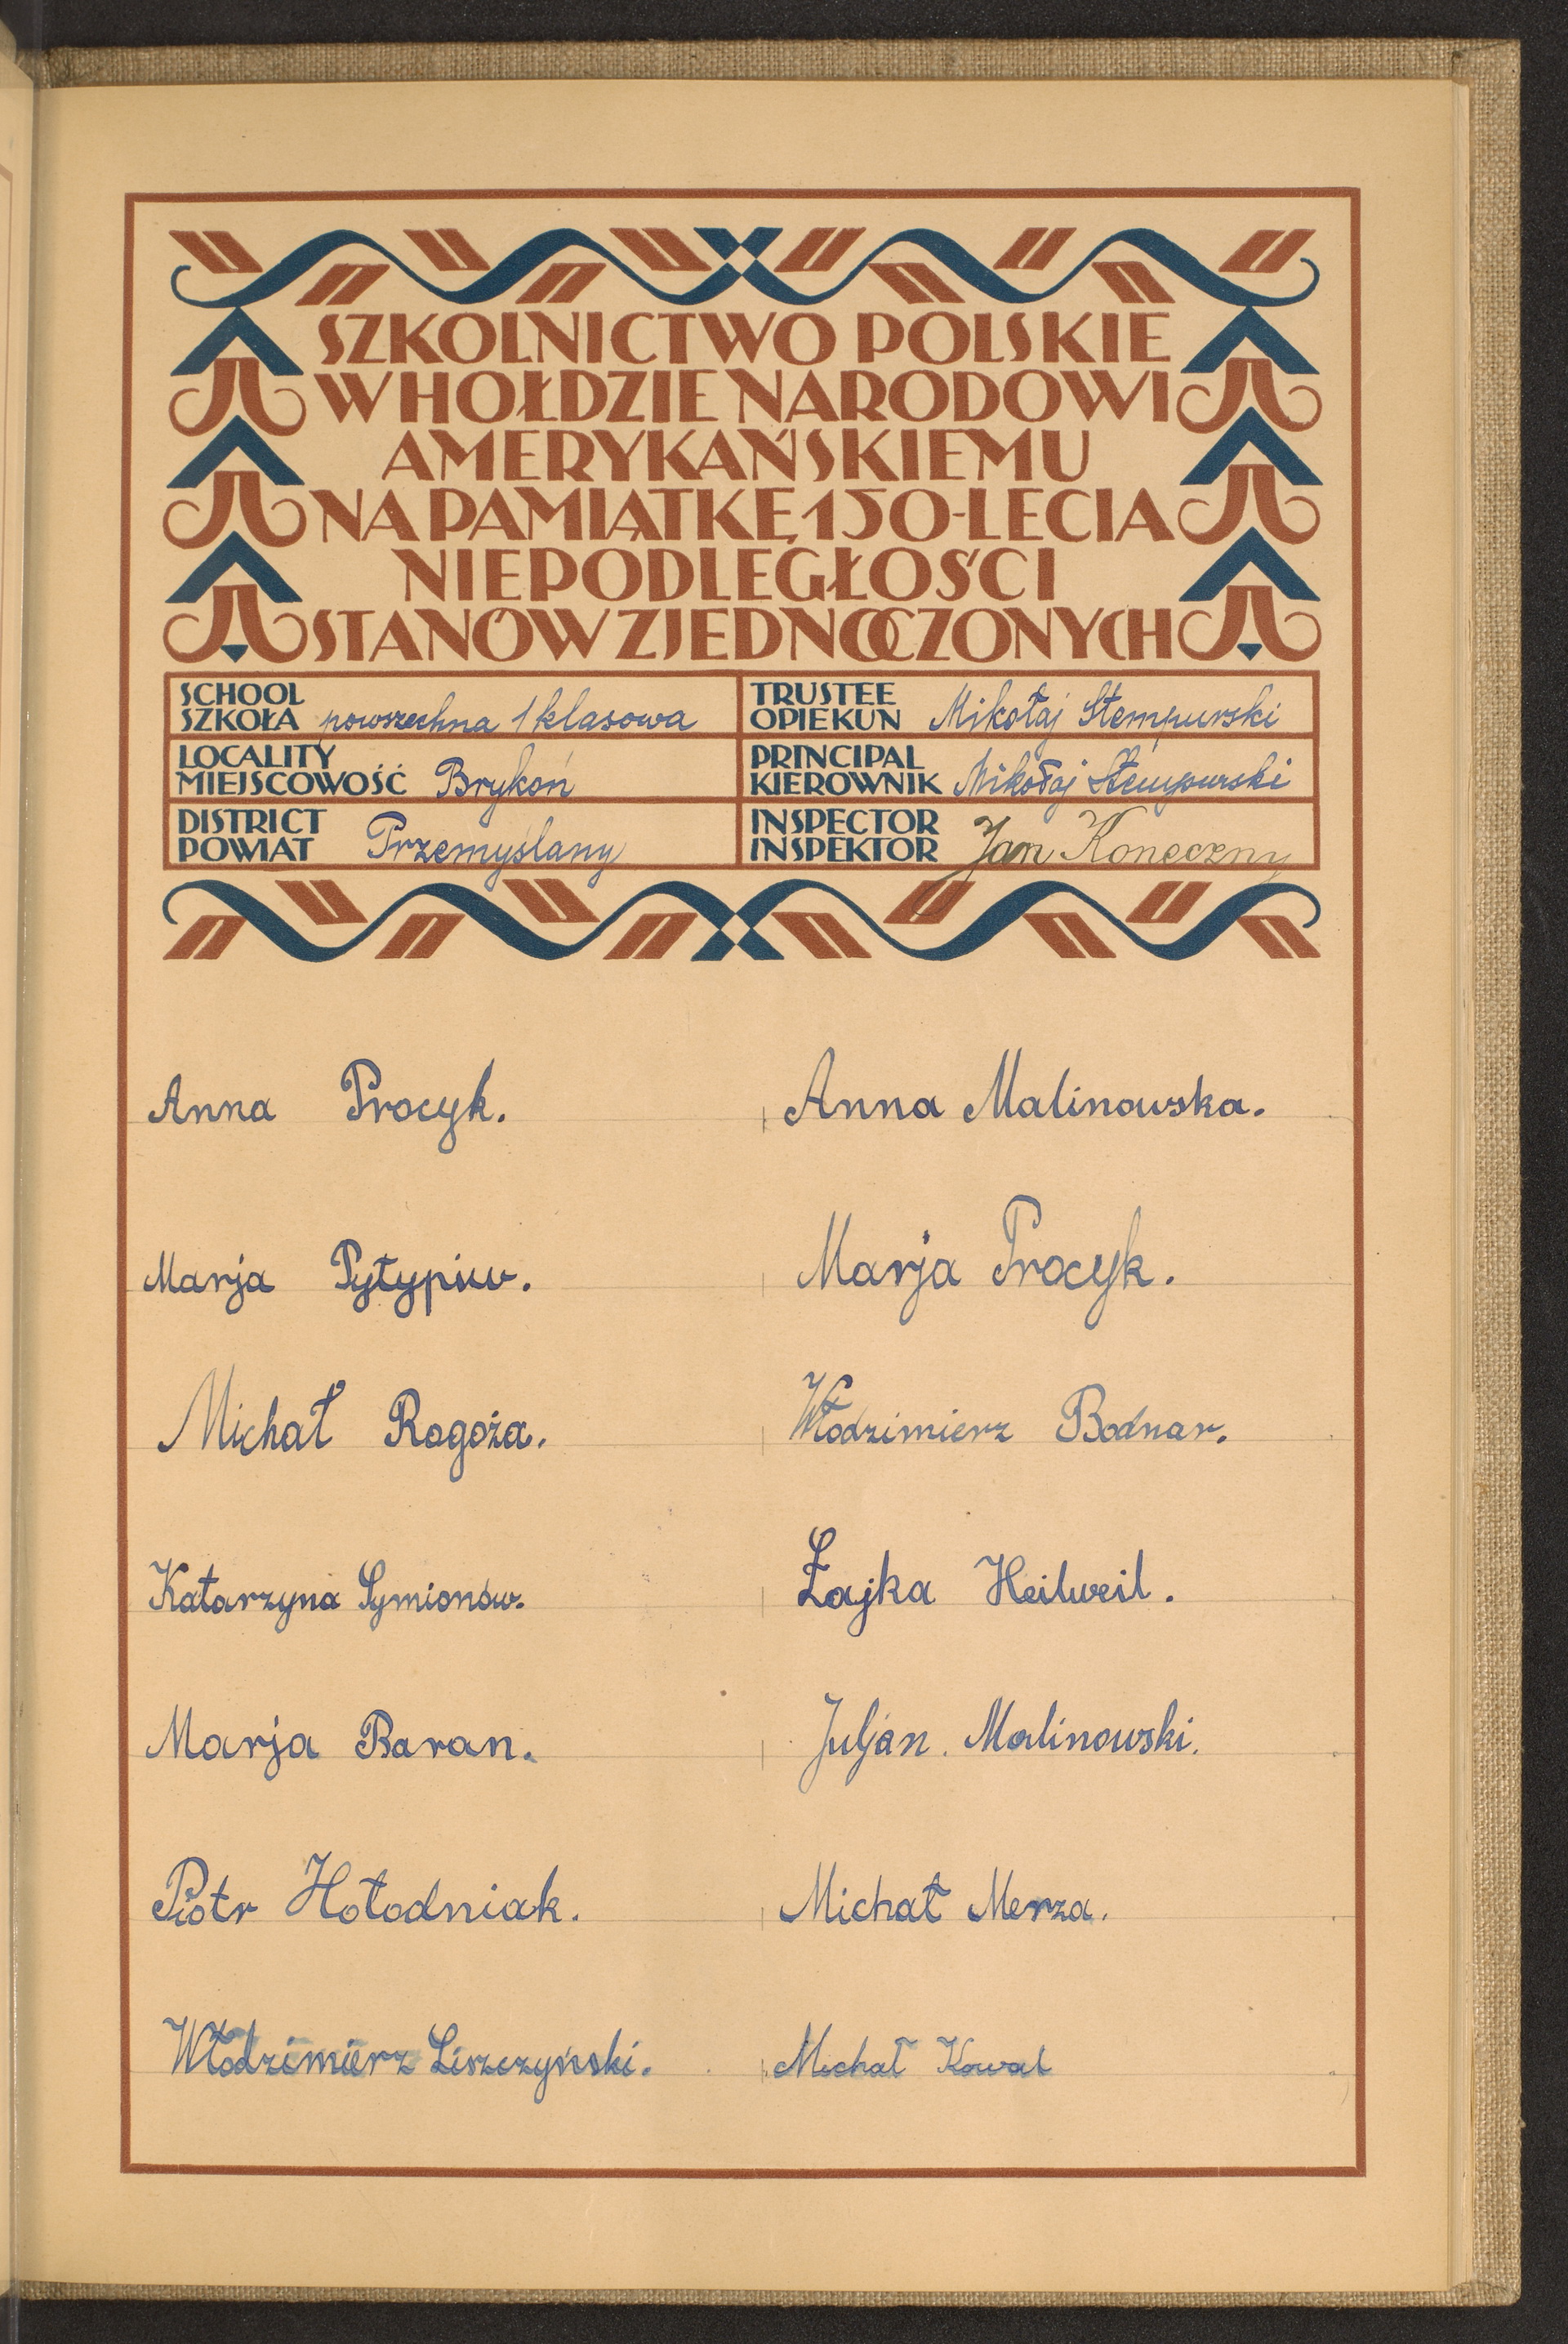 SZKOLNICTWO POLSKIE
W HOŁDZIE NARODOWI
AMERYKAŃSKIEMU
NA PAMIĄTKĘ 150-LECIA
NIEPODLEGŁOŚCI
STANÓW ZJEDNOCZONYCH
SCHOOL
SZKOŁA powszechna 1 klasowa
TRUSTEE
OPIEKUN Mikołaj Stempurski
LOCALITY
MIEJSCOWOŚĆ Brykoń
PRINCIPAL
KIEROWNIK Mikołaj Stempurski
DISTRICT
POWIAT Przemyślany
INSPECTOR
INSPEKTOR Jan Koneczny
Anna Procyk.
Anna Malinowska.
Marja Pytypiw.
Marja Procyk.
Michał Rogoża.
Włodzimierz Bodnar.
Katarzyna Symionów.
Łajka Heilweil.
Marja Baran.
Juljan Malinowski.
Piotr Hołodniak.
Michał Merza.
Włodzimierz Liszczyński.
Michał Kowal